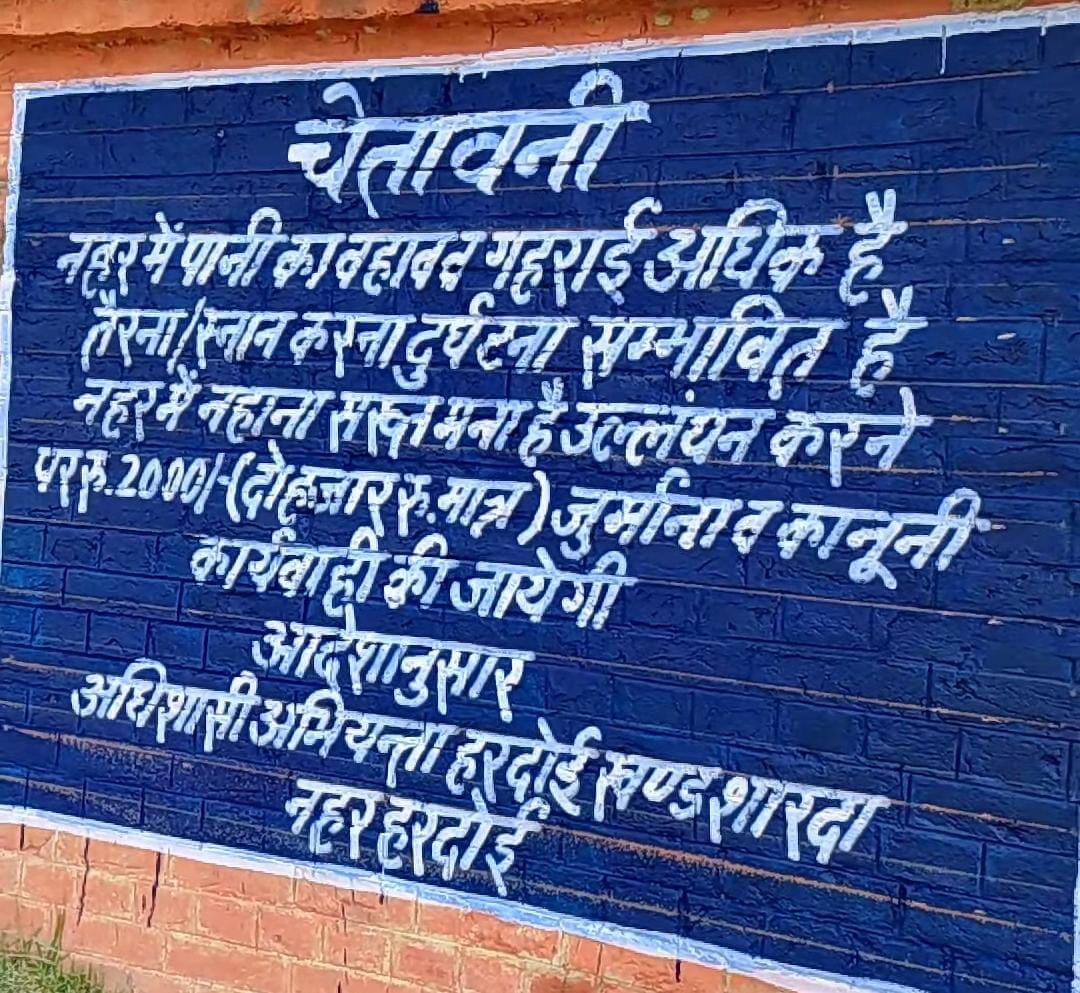 चेतावनी
नहर में पानी का वहाव व गहराई अधिक है
तैरना/स्नान करना दुर्घटना सम्भावित है
नहर में नहाना सख्त मना है उल्लंघन करने
पर रु. 2000/-(दो हजार रु. मात्र) जुर्माना व कानूनी
कार्यवाही की जायेगी
आदेशानुसार
अधिशासी अभियन्ता हरदोई खण्ड शारदा
नहर हरदोई